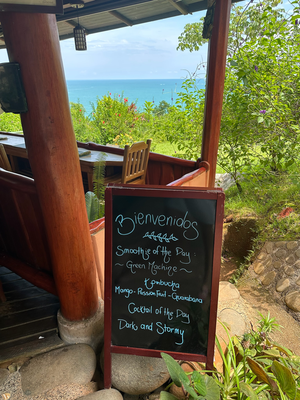 Bienvenidos
Smoothie of the Day:
~ Green Machine ~
Kombucha
Mango - Passion Fruit - Guanabana
Cocktail of the Day
Dark and Stormy